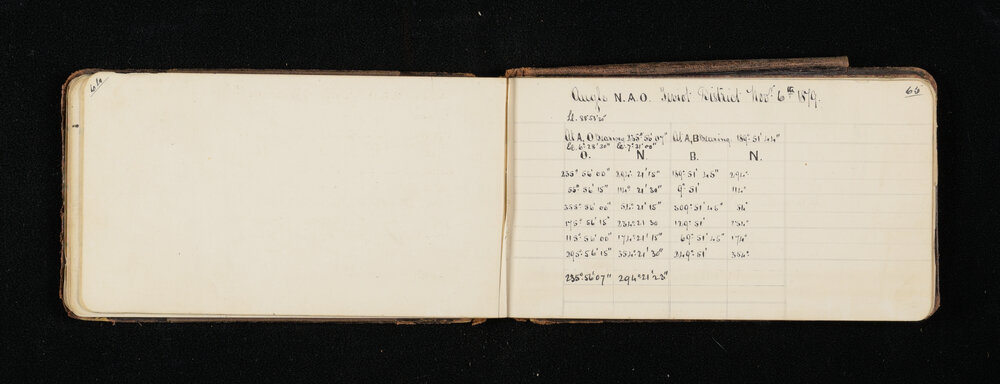 64
65
Angle N.A.O. District Novr. 6th 1879.
At A, O Bearing 235° 56' 07" At A, B Bearing 189° 51' 44"
O. N. B. N.
235° 56' 00" 294° 21' 15" 189° 51' 45" 294°
55° 56' 15" 114° 21' 30" 9° 51' 114°
355° 56' 00" 54° 21' 15" 309° 51' 45" 54°
175° 56' 15" 234° 21' 30 129° 51' 234°
115° 56' 00" 174° 21' 15" 69° 51' 45" 174°
295° 56' 15" 354° 21' 30" 249° 51' 354°
235° 56' 07" 294° 21' 23"